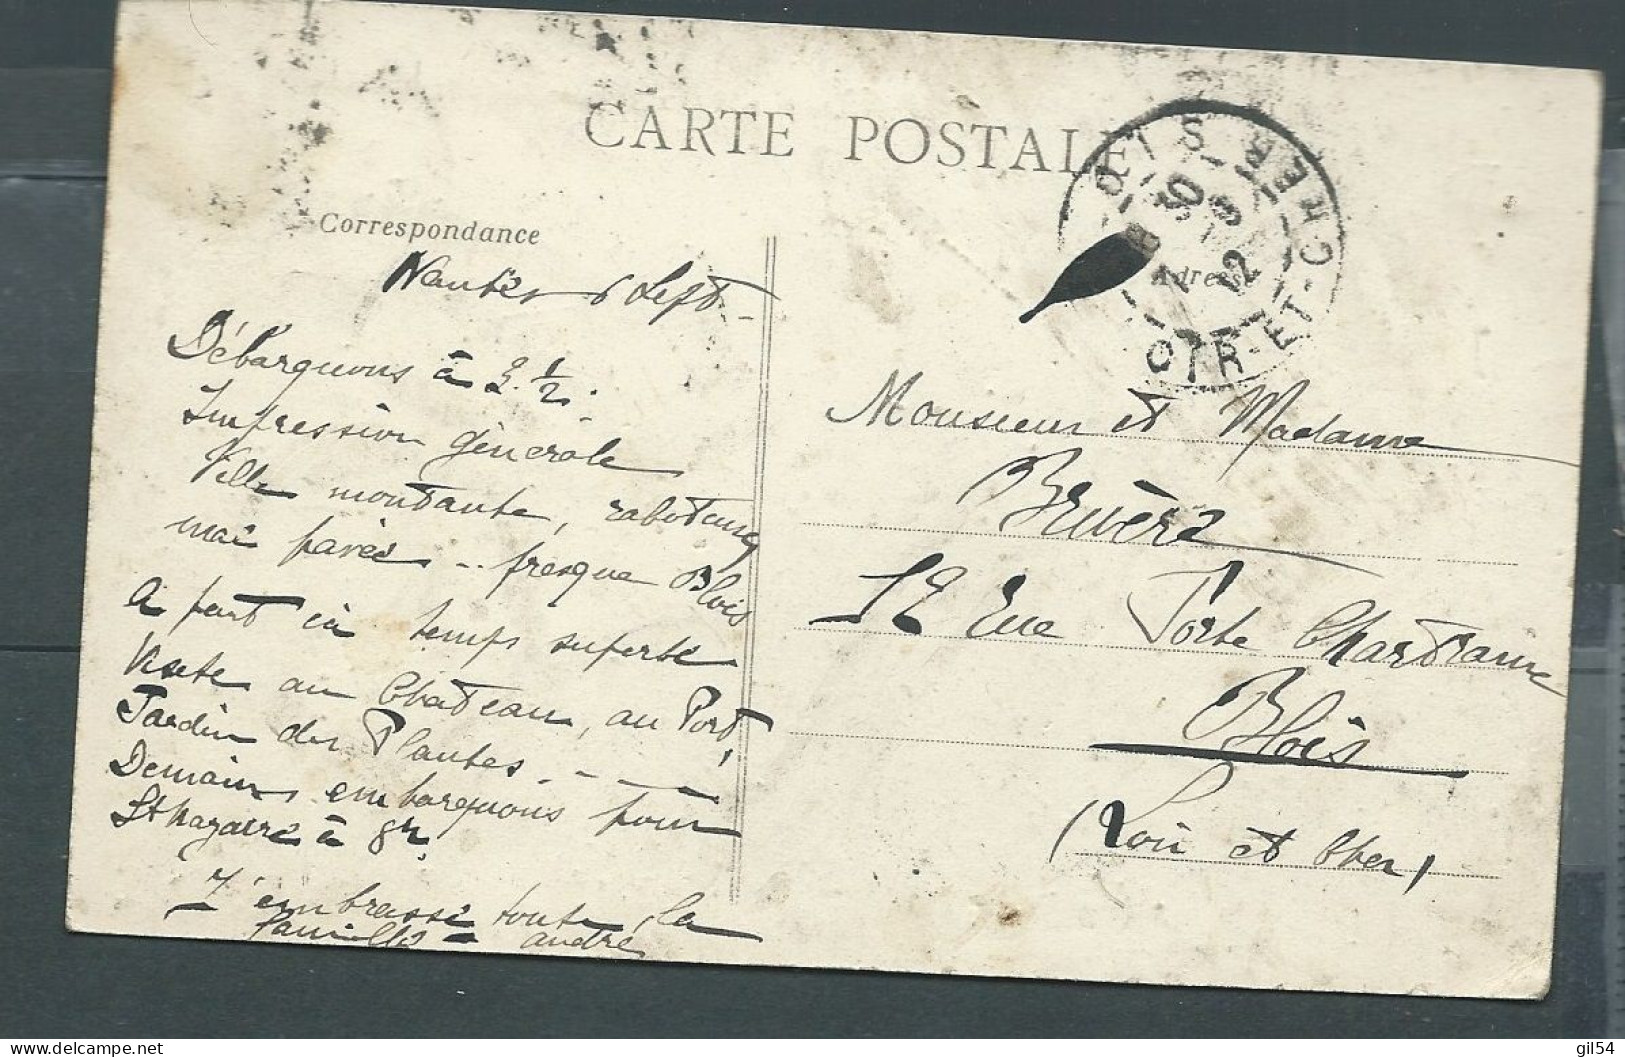 CARTE POSTALE
Correspondance
Nantes 6 Sept.
Débarquons à 2. 1/2.
Impression générale
Ville montante, raboteuse
mal pavée .. presque Blois
à part çà temps superbe
Visite au Chateau, au Port,
Jardin des Plantes. - - -
Demain embarquons pour
St Nazaire à 8h.
J'embrasse toute la
famille - andré
BLOIS
LOIR-ET-CHER
9
12
Adresse
Monsieur et Madame
Bruère
12 rue Porte Chartraine
Blois
(Loir et Cher)
gil54